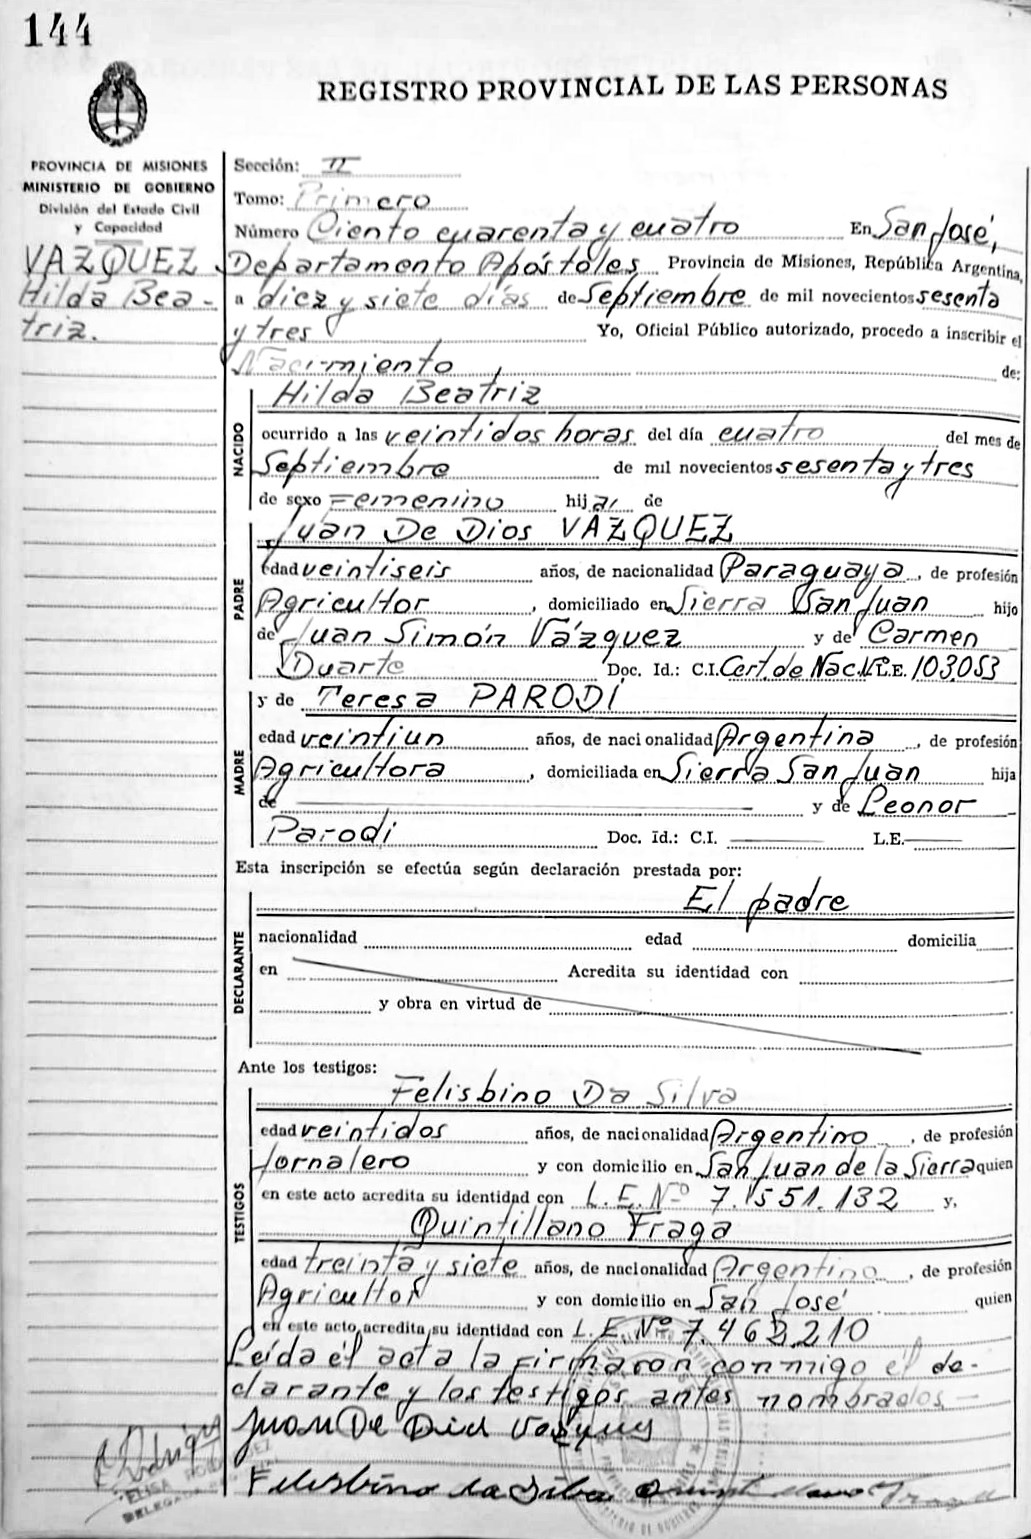 144
REGISTRO PROVINCIAL DE LAS PERSONAS
PROVINCIA DE MISIONES
MINISTERIO DE GOBIERNO
División del Estado Civil
y Capacidad
VAZQUEZ
Hilda Bea-
triz.
Sección: II
Tomo: Primero
Número Ciento cuarenta y cuatro En San José,
Departamento Apóstoles Provincia de Misiones, República Argentina,
a diez y siete días de Septiembre de mil novecientos sesenta
y tres Yo, Oficial Público autorizado, procedo a inscribir el
Nacimiento de:
NACIDO
Hilda Beatriz
ocurrido a las veintidos horas del día cuatro del mes de
Septiembre de mil novecientos sesenta y tres
de sexo Femenino hija de
PADRE
Juan De Dios VÁZQUEZ
edad veintiseis años, de nacionalidad Paraguaya, de profesión
Agricultor, domiciliado en Sierra San Juan hijo
de Juan Simón Vázquez y de Carmen
Duarte Doc. Id.: C.I. Cert. de Nac. L.E. 103.053
MADRE
y de Teresa PARODI
edad veintiun años, de nacionalidad Argentina, de profesión
Agricultora, domiciliada en Sierra San Juan hija
de y de Leonor
Parodi Doc. Id.: C.I. L.E.
Esta inscripción se efectúa según declaración prestada por:
DECLARANTE
El padre
nacionalidad edad domicilia
en Acredita su identidad con
y obra en virtud de
Ante los testigos:
TESTIGOS
Felisbino Da Silva
edad veintidos años, de nacionalidad Argentino, de profesión
Jornalero y con domicilio en San Juan de la Sierra quien
en este acto acredita su identidad con L.E. Nº 7.551.132 y,
Quintillano Fraga
edad treinta y siete años, de nacionalidad Argentino, de profesión
Agricultor y con domicilio en San José quien
en este acto acredita su identidad con L.E. Nº 7.462.210
Leída el acta la firmaron conmigo el de-
clarante y los testigos antes nombrados
Juan De Dios Vazquez
Felisbino da Silva